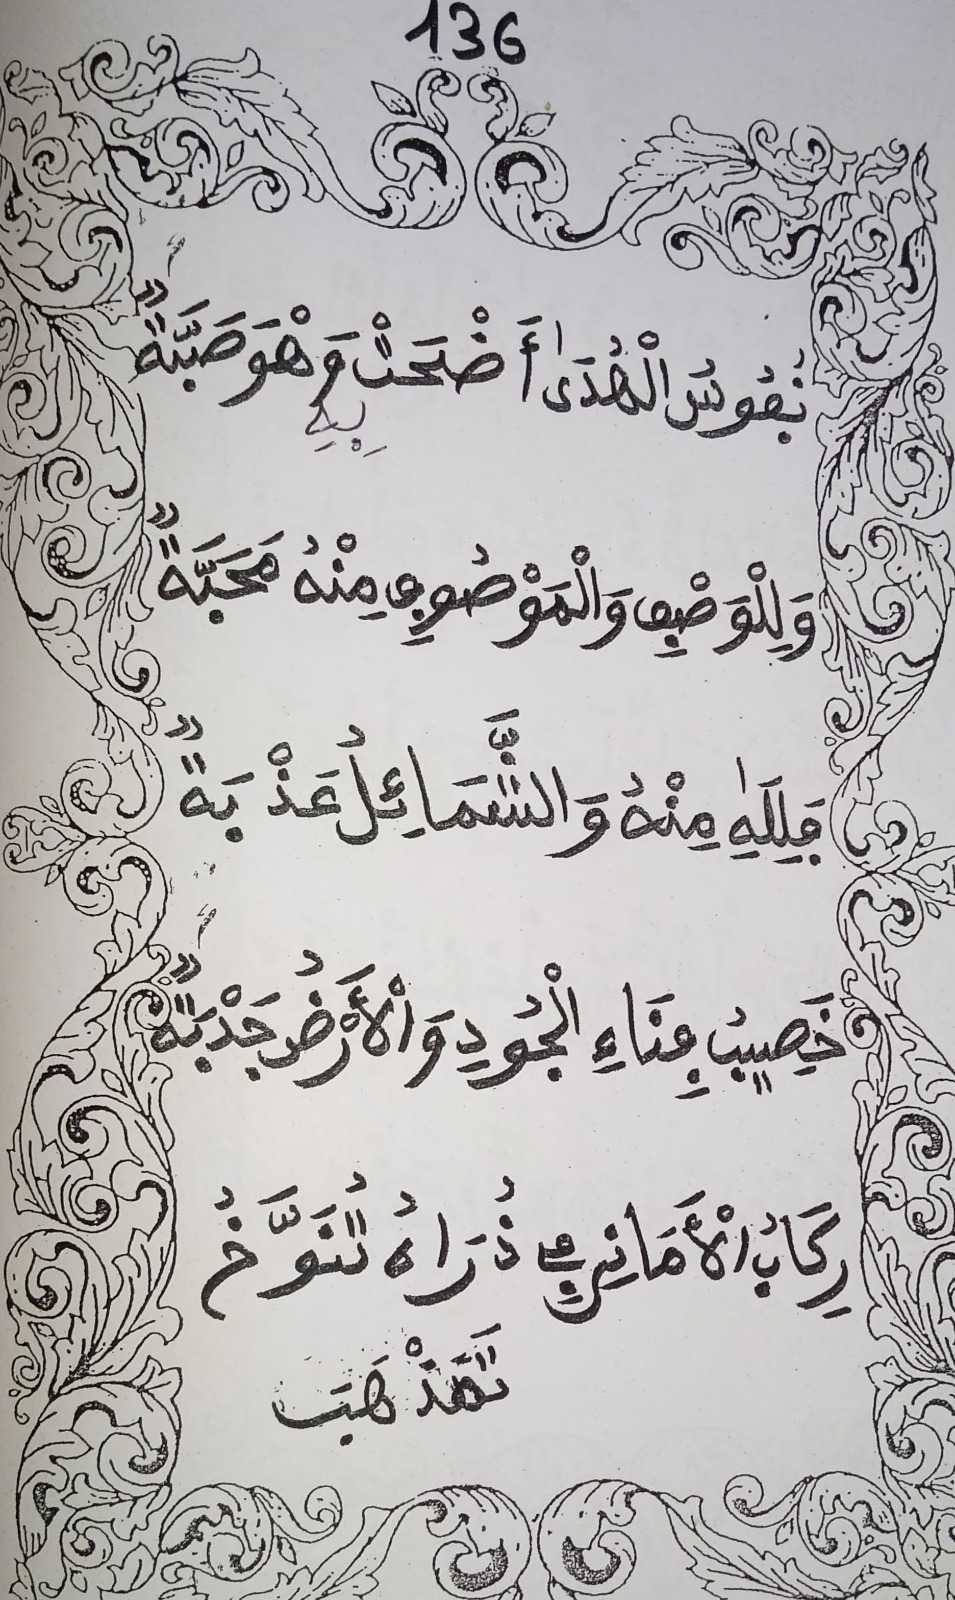 136
نُفُوسُ الْهُدَىٰ أَضْحَتْ وَهْوَ صَبَّةٌ
وَلِلْوَصْفِ وَالْمَوْصُوفِ مِنْهُ مَحَبَّةٌ
فَلِلَّهِ مِنْهُ وَالشَّمَائِلُ عَذْبَةٌ
خَصِيبُ فِنَاءِ الْجُودِ وَالْأَرْضُ جَدْبَةٌ
رِكَابُ الْأَمَانِي فِي ذُرَاهُ تُنَوَّخُ
تَمَذْهَبَ